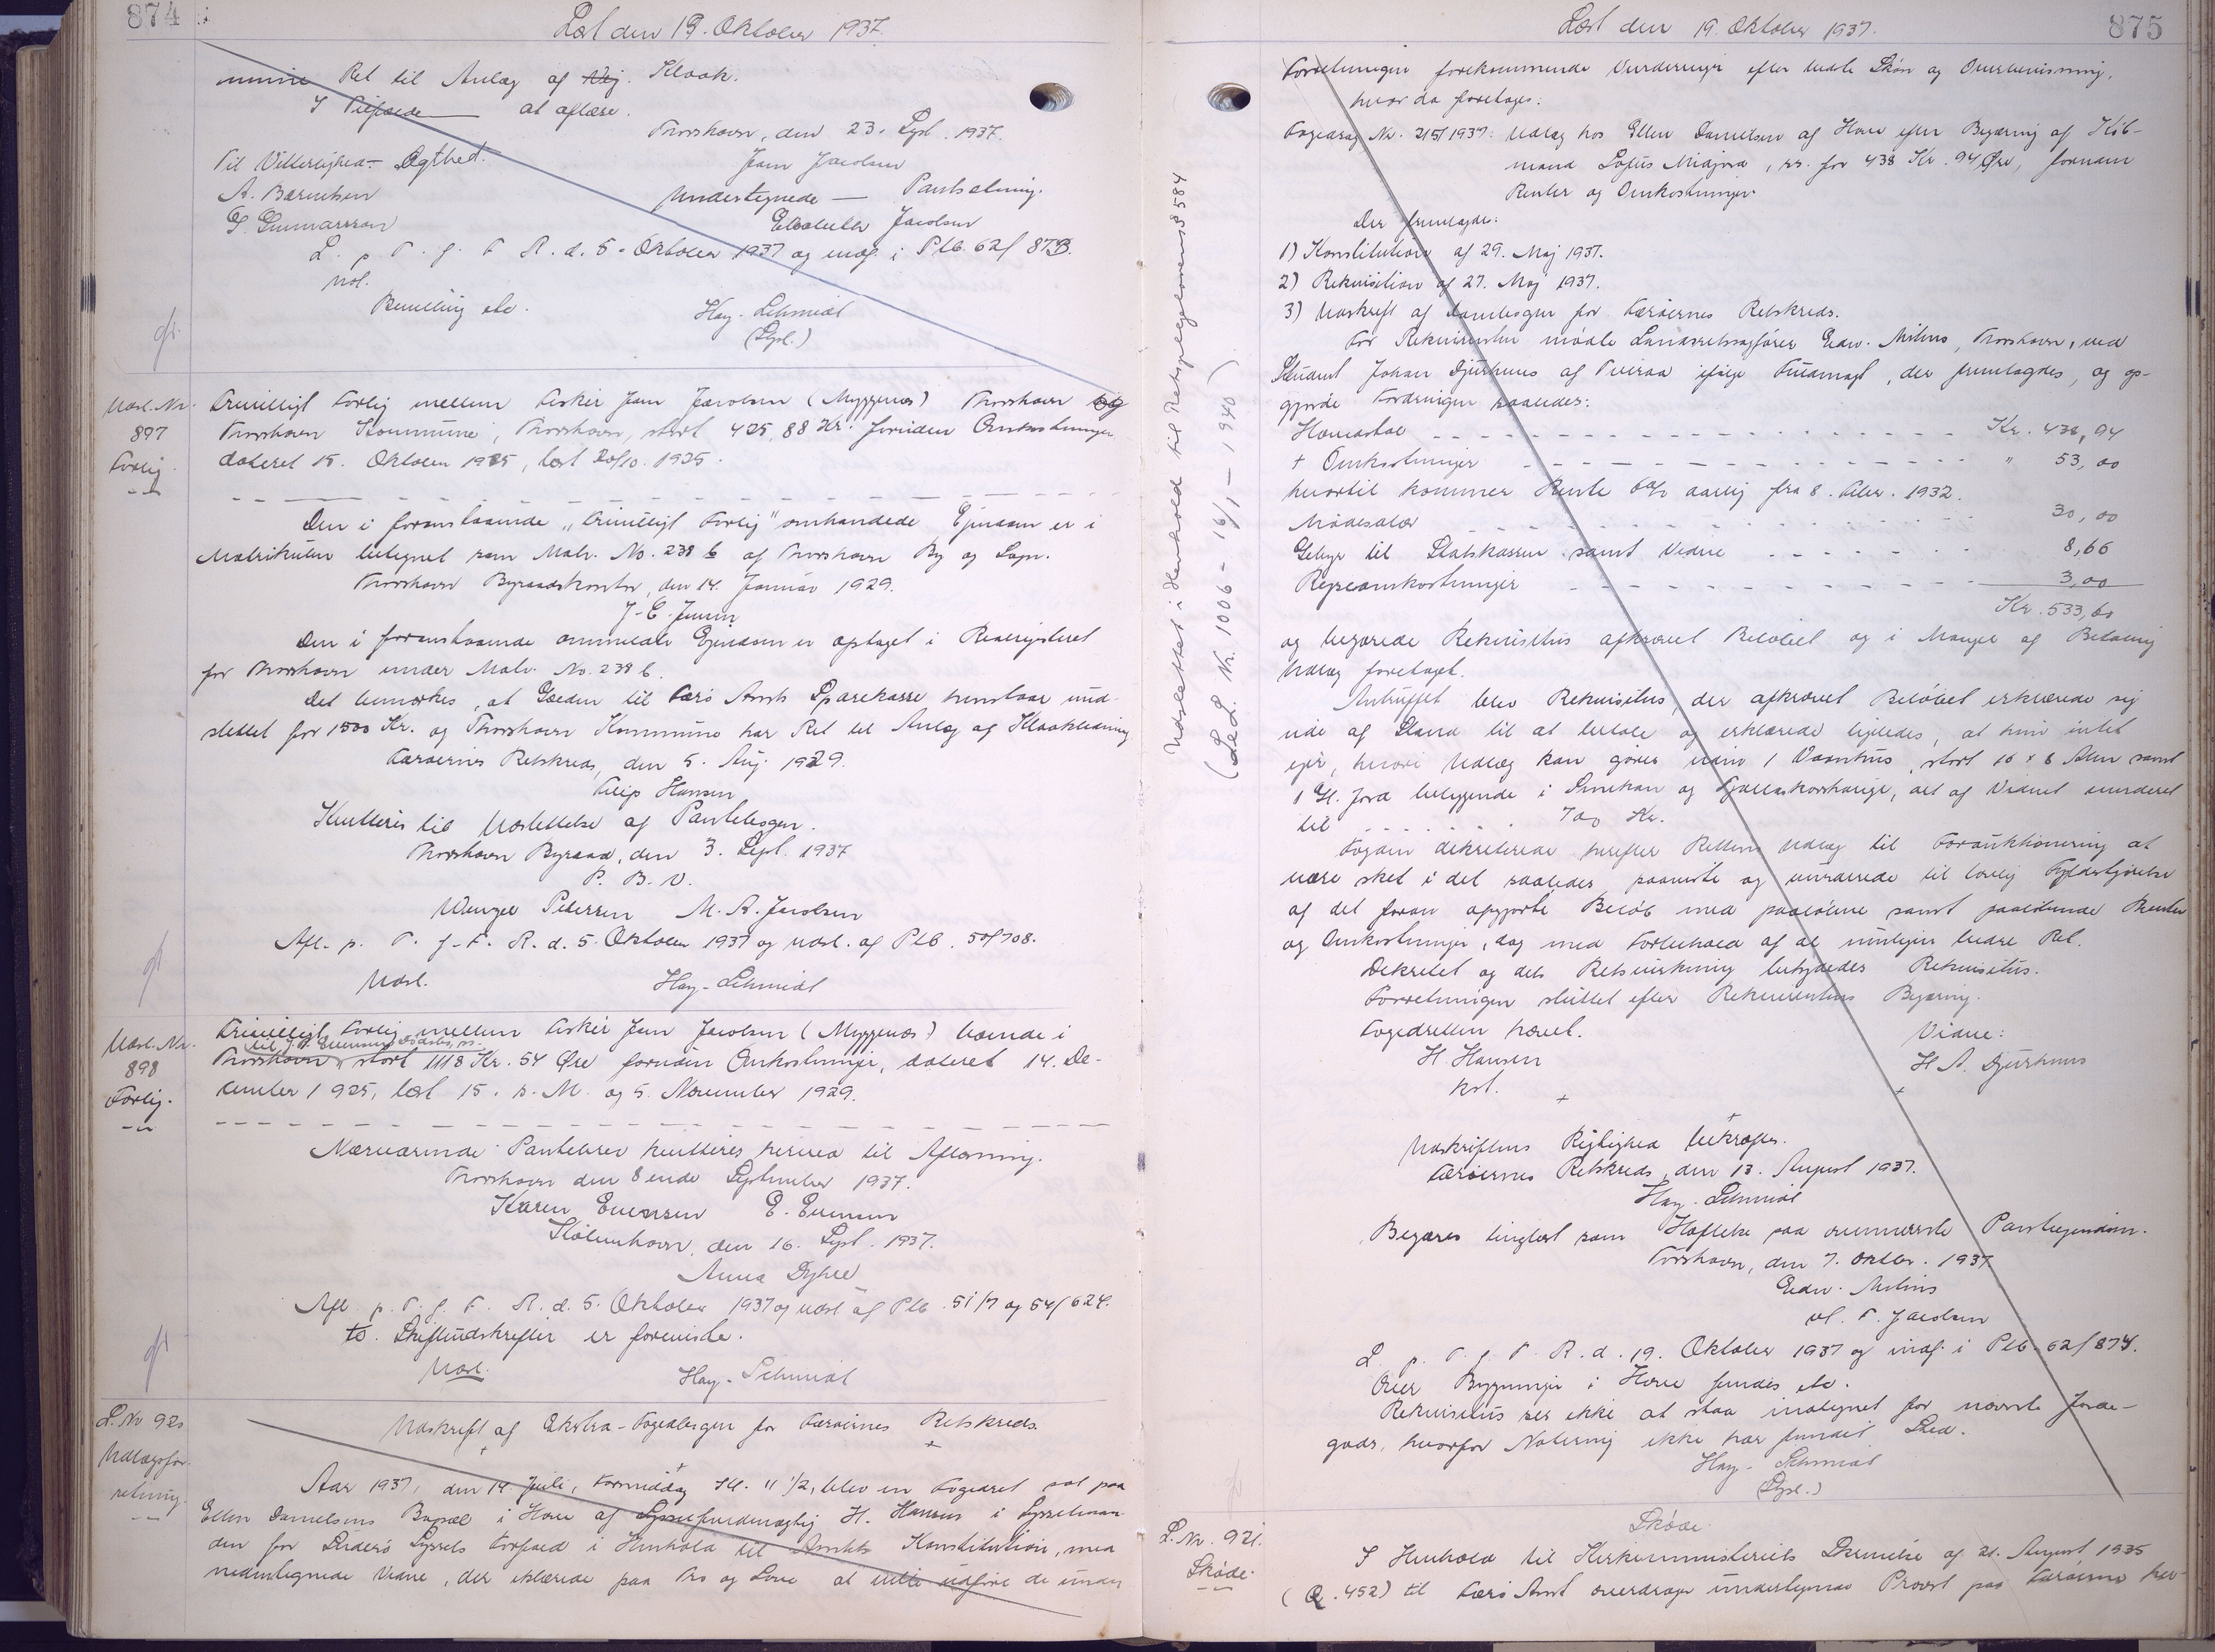 874
Læst den 19. Oktober 1937.
mune Ret til Anlæg af Vej. Kloak.
I Tilfælde — at aflæse.
Thorshavn, den 23. Sept. 1937.
Til Vitterlighed — Ægthed.
Joen Jacobsen
A. Bærentsen
Undertegnede — Pantsætning.
G. Gunnarsson
Elsebeth Jacobsen
L. p. T. f. F. R. d. 5. Oktober 1937 og indf. i Ptb. 62f 873.
Udl.
Bemelding etc.
Hay-Schmidt
(Dpl.)
Udsl. Nr. 897
Forlig.
Frivilligt Forlig mellem Fisker Joen Jacobsen (Myggenæs) Thorshavn og
Thorshavn Kommune, Thorshavn, stort 425,88 Kr. foruden Omkostninger
dateret 15. Oktober 1925, læst 20/10. 1925.
Den i foranstaaende "Frivilligt Forlig" omhandlede Ejendom er i
Matrikulen betegnet som Matr. No. 238 b af Thorshavn By og Sogn.
Thorshavn Byraadskontor, den 14. Januar 1929.
J. C. Jensen
Den i foranstaaende ommeldte Ejendom er optaget i Realregistret
for Thorshavn under Matr. No. 238 b.
Det bemærkes, at Gælden til Færø Amts Sparekasse henstaar uud-
slettet for 1500 Kr. og Thorshavn Kommune har Ret til Anlæg af Kloakledning
Færøernes Retskreds, den 5. Aug. 1929.
Filip Hansen
Kvitteres til Udslettelse af Pantebogen.
Thorshavn Byraad, den 3. Sept. 1937
P. B. V.
Wenzel Petersen M. A. Jacobsen
Afl. p. T. f. F. R. d. 5. Oktober 1937 og udsl. af Ptb. 50f708.
Udsl.
Hay-Schmidt
Udsl. Nr. 898
Forlig.
Frivilligt Forlig mellem Fisker Joen Jacobsen (Myggenæs) boende i
Thorshavn, stort 1118 Kr. 54 Øre foruden Omkostninger, dateret 14. De-
cember 1925, læst 15. s. M. og 5. November 1929.
Nærværende Pantebrev kvitteres herved til Aflæsning.
Thorshavn den 8ende September 1937.
Karen Evensen E. Evensen
København, den 16. Sept. 1937.
Anna
Afl. p. T. f. F. R. d. 5. Oktober 1937 og udsl. af Ptb. 51/7 og 54f624.
to Skifteudskrifter er foreviste.
Udsl.
Hay-Schmidt
L. Nr. 920
Udlægsfor-
retning.
Udskrift af Ekstra-Fogedbogen for Færøernes Retskreds.
Aar 1937, den 14. Juli, Formiddag Kl. 11 1/2, blev en Fogedret sat paa
Ellen Danielsens Bopæl i Hove af Sysselfuldmægtig H. Hansen i Sysselman-
den for Suderø Syssels Forfald i Henhold til Amtets Konstitution, med
nedentegnede Vidne, der erklærede paa Tro og Love at ville udføre de under
875
Læst den 19. Oktober 1937.
Udslettet i Henhold til Retsplejelovens § 584
(L. L. Nr. 1006 - 16/1 - 1940)
Forretningen forekommende Vurderinger efter bedste Skøn og Overbevisning,
hvor da foretoges:
Fogedsag Nr. 215/1937: Udlæg hos Ellen Danielsen af Hove efter Begæring af Køb-
mand Sofus Midjord, ss. for 438 Kr. 94 Øre, foruden
Renter og Omkostninger.
Der fremlagdes:
1) Konstitution af 29. Maj 1937.
2) Rekvisition af 27. Maj 1937.
3) Udskrift af Dombogen for Færøernes Retskreds.
For Rekvirenten mødte Landsretssagfører Edw. Mitens, Thorshavn, ved
Student Johan Djurhuus af Tveraa ifølge Fuldmagt, der fremlagdes, og op-
gjorde Fordringen saaledes:
Hovedstol Kr. 438,94
+ Omkostninger " 53,00
hvortil kommer Rente 6% aarlig fra 8. Febr. 1932.
Mødesalær 30,00
Gebyr til Statskassen samt Vidne 8,66
Rejseomkostninger 3,00
Kr. 533,60
og begærede Rekvisitus afkrævet Beløbet og i Mangel af Betaling
Udlæg foretaget.
Antruffet blev Rekvisitus, der afkrævet Beløbet erklærede sig
ude af Stand til at betale og erklærede ligeledes, at hun intet
ejer, hvori Udlæg kan gøres uden 1 Vaanhus, stort 10 x 8 Alen samt
1 Gl. Jord beliggende i og, alt af Vidnet vurderet
til 700 Kr.
Fogden dekreterede herefter Rettens Udlæg til Forauktionering at
være sket i det saaledes paaviste og vurderede til lovlig Fyldestgørelse
af det foran opgjorte Beløb med paaløbne samt paaløbende Renter
og Omkostninger, dog med Forbehold af de muligen bedre Ret.
Dekretet og dets Retsvirkning betydedes Rekvisitus.
Forretningen sluttet efter Rekvirentens Begæring.
Fogedretten hævet.
Vidne:
H. Hansen
H. A. Djurhuus
kst.
Udskriftens Rigtighed bekræftes.
Færøernes Retskreds, den 13. August 1937.
Hay-Schmidt
Begæres tinglæst som Hæftelse paa ovennævnte Pantejendom.
Torshavn, den 7. Oktbr. 1937
Edw. Mitens
v/ F. Jacobsen
L. p. T. f. F. R. d. 19. Oktober 1937 og indf. i Ptb. 62f874.
Over Bygninger i Hove fandtes etc.
Rekvisitus ses ikke at staa indtegnet for nævnte Jorde-
gods, hvorfor Notering ikke har fundet Sted.
Hay-Schmidt
(Dpl.)
L. Nr. 921.
Skøde.
Skøde.
I Henhold til Kirkeministeriets Skrivelse af 21. August 1935
(Q. 452) til Færø Amt overdrager undertegnede Provst paa Færøerne her-